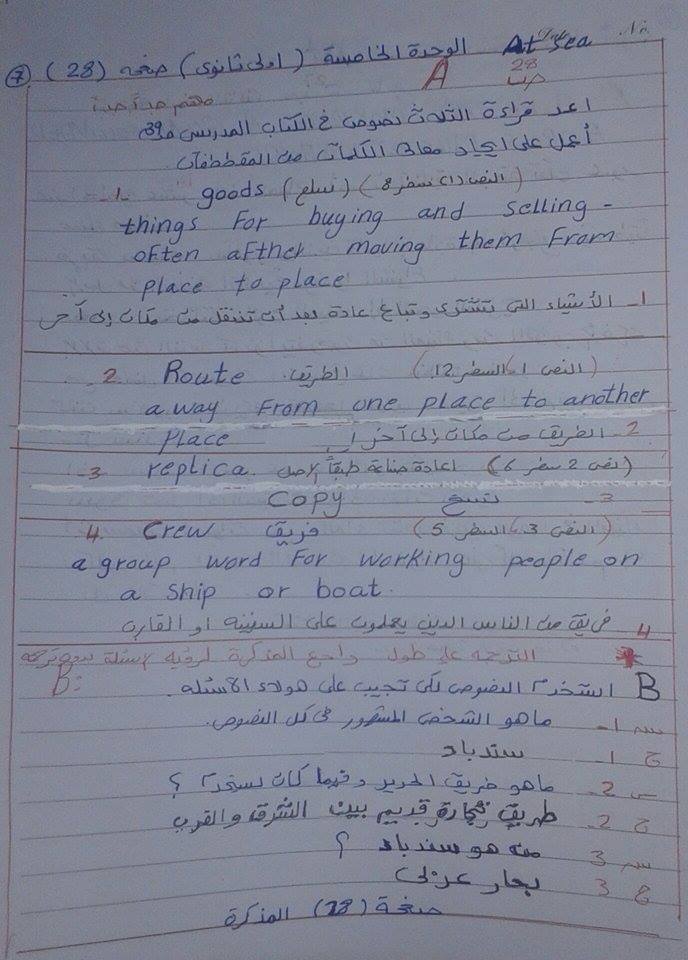 At sea الوحدة الخامسة (اولى ثانوى) صفحه (28) 7
A 28 ص
مهم جداً جداً
اعد قراءة الثلاث نصوص فى الكتاب المدرسى ص39
أعمل على ايجاد معانى الكلمات من المقططفات
1. goods (سلع) (النص (1) سطر 8)
things For buying and selling -
oFten aFther moving them From
place to place
1- الأشياء التى تشترى وتباع عادة بعد أن تنتقل من مكان إلى آخر
2. Route الطريق (النص 1 السطر 12)
a way From one place to another
place
2- الطريق من مكان إلى آخر
3- replica. اعادة صناعة طبقاً لاصل (نص 2 سطر 6)
Copy نسخ 3-
4. Crew فريق (النص 3 السطر 5)
a group word For working people on
a ship or boat.
4 فريق من الناس الذين يعملون على السفينه او القارب
الترجمه على طول راجع المذكرة لرؤية الاسئلة
B استخدم النصوص لكى تجيب على هولاء الاسئله. B:
س 1- ماهو الشخص المشهور فى كل النصوص.
ج 1- سندباد
س 2- ماهو طريق الحرير وفيما كان يستخدم ؟
ج 2- طريق تجارة قديم بين الشرق والغرب
س 3 من هو سندباد ؟
ج 3 بحار عربى
صفحة (28) المذكرة